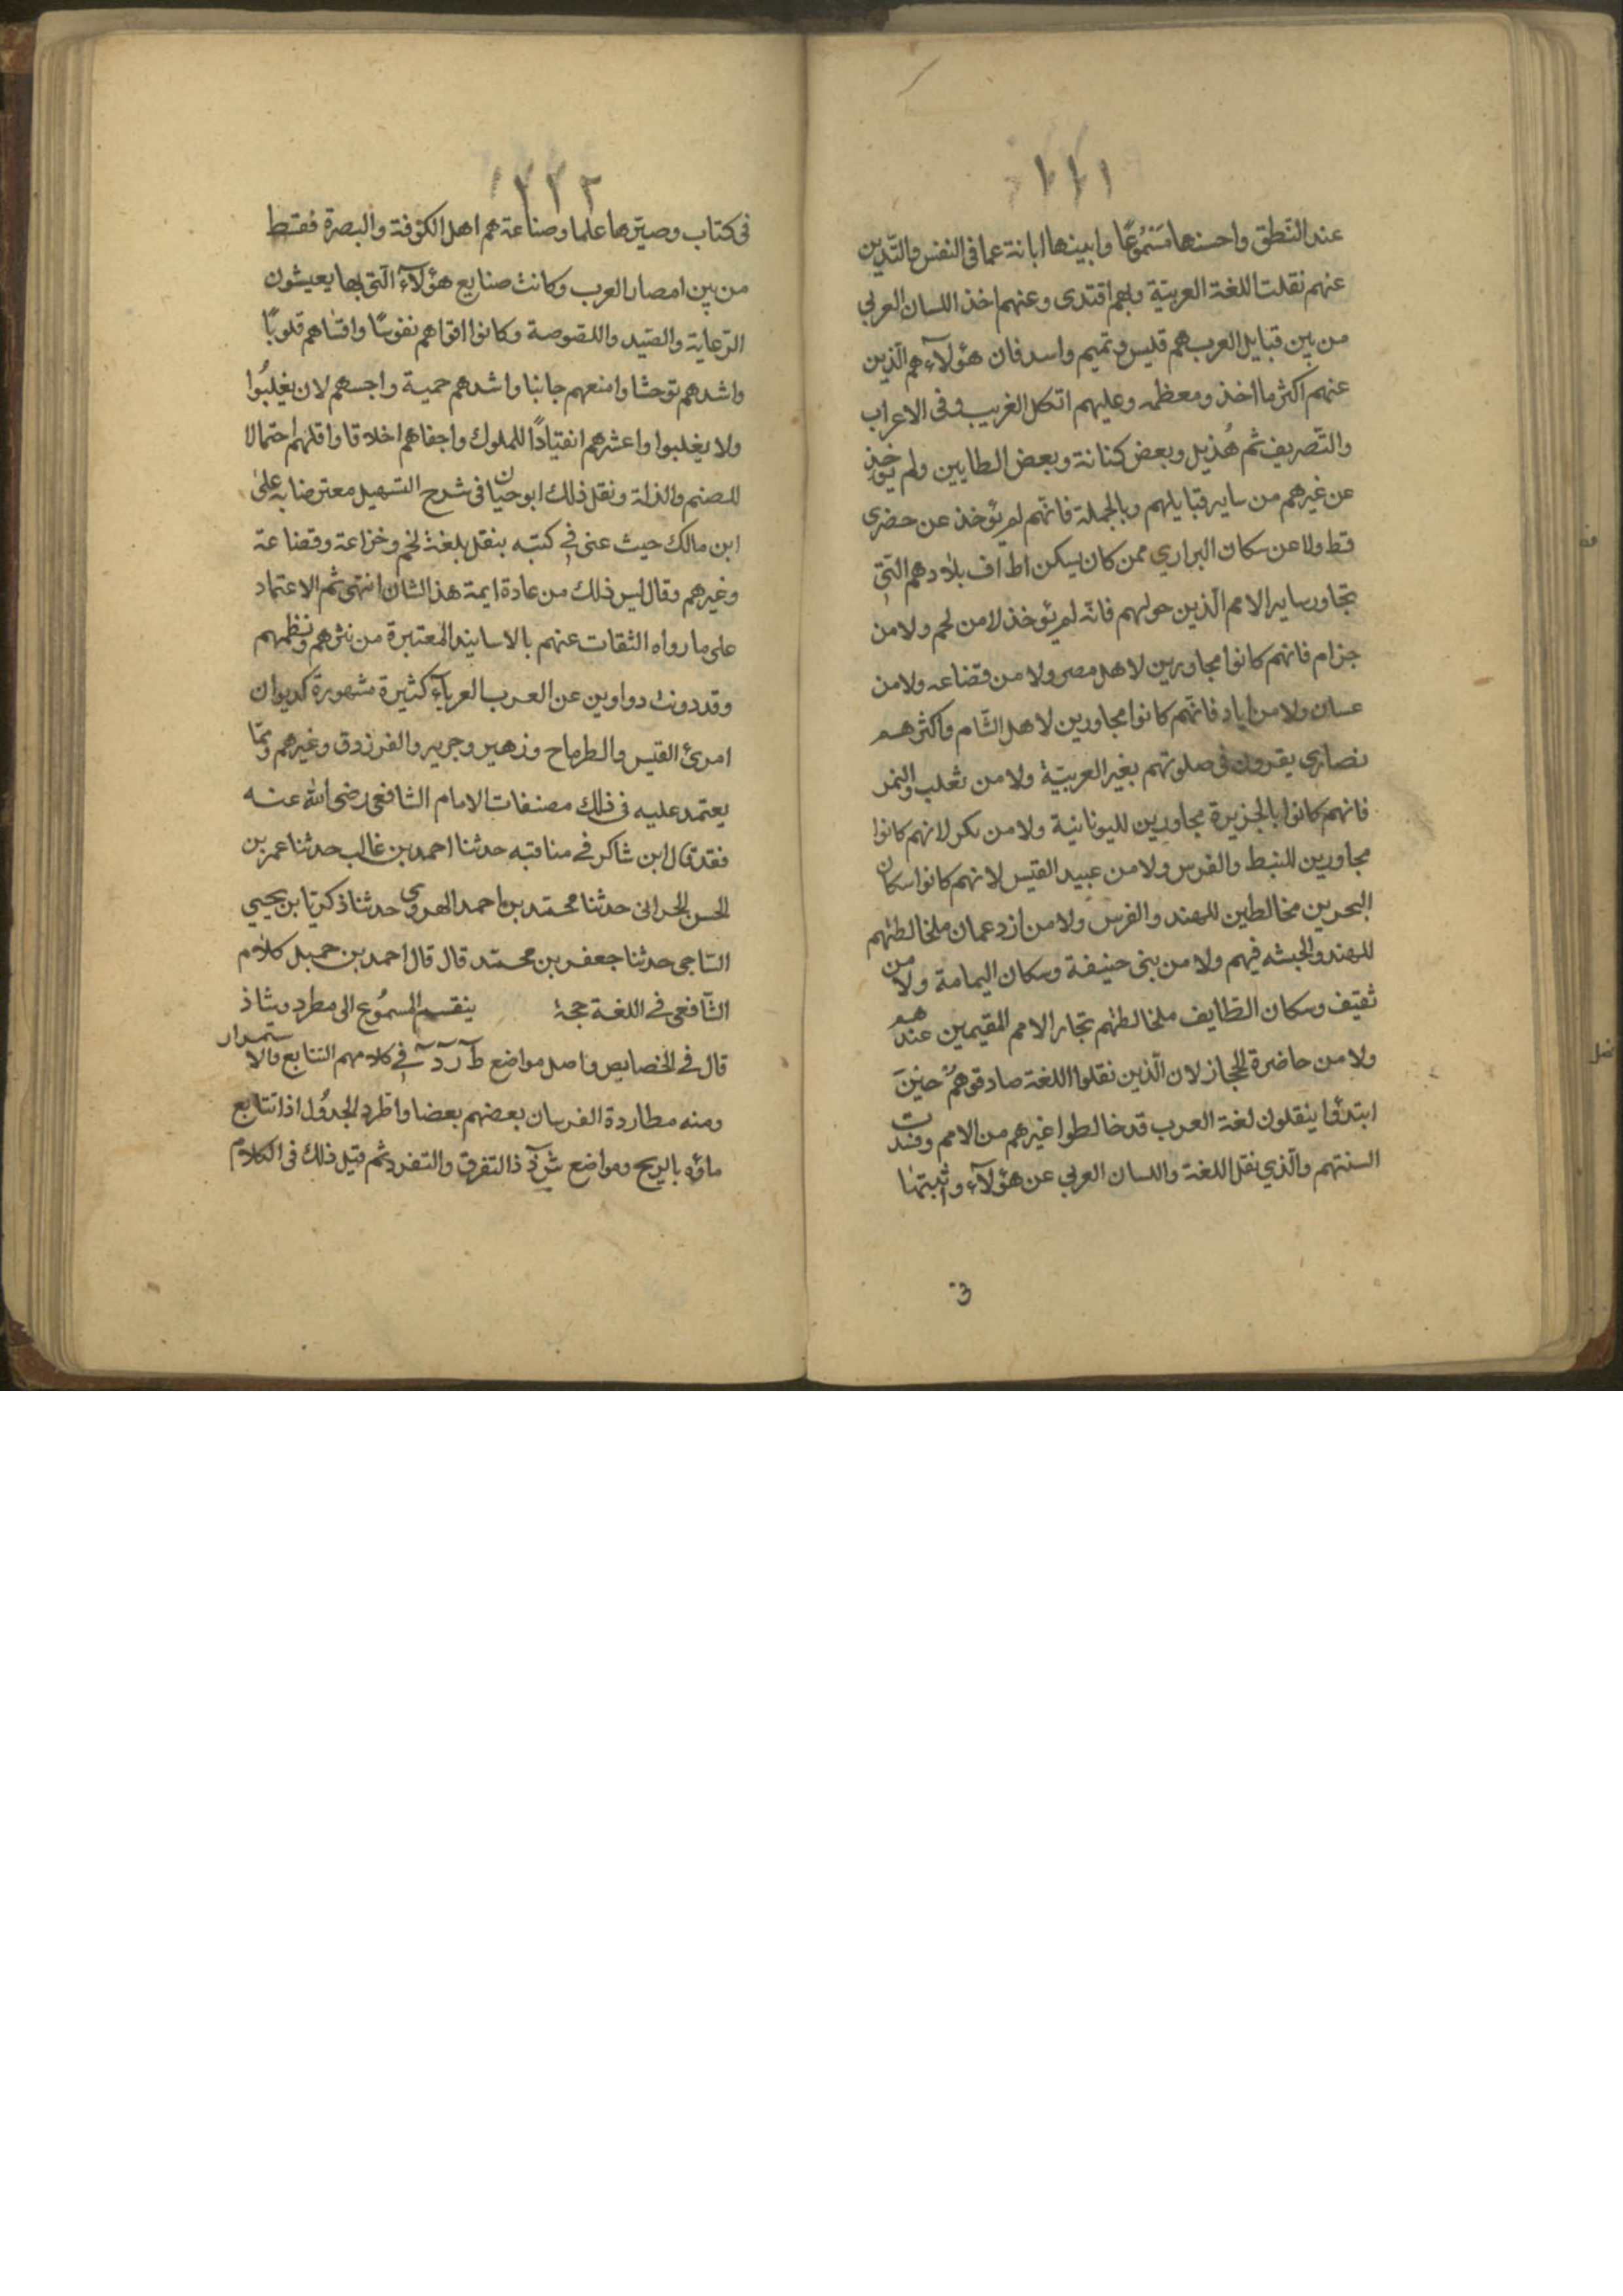 ١٢١
عند النطق واحسنها مَسْمُوعًا وابينها ابانة عما في النفس والذين
عنهم نقلت اللغة العربية وبهم اقتدى وعنهم اخذ اللسان العربي
من بين قبايل العرب هم قيس وتميم واسد فان هؤلآء هم الذين
عنهم اكثر ما اخذ ومعظمه وعليهم اتكل الغريب وفى الاعراب
والتصريف ثم هُذيل وبعض كنانة وبعض الطايين ولم يؤخذ
عن غيرهم من ساير قبايلهم وبالجملة فانهم لم يؤخذ عن حضرى
قط ولا عن سكان البراري ممن كان يسكن اطراف بلادهم التى
تجاور ساير الامم الذين حولهم فانه لم يؤخذ لا من لخم ولا من
جزام فانهم كانوا مجاورين لاهل مصر ولا من قضاعه ولا من
غسان ولا من اياد فانهم كانوا مجاورين لاهل الشام واكثرهم
نصارى يقرون فى صلوتهم بغير العربية ولا من تغلب والنمر
فانهم كانوا بالجزيرة مجاورين لليونانية ولا من بكر لانهم كانوا
مجاورين للنبط والفرس ولا من عبيد القيس لانهم كانوا سكان
البحرين مخالطين للهند والفرس ولا من ازد عمان لمخالطتهم
للهند والحبشه فيهم ولا من بنى حنيفة وسكان اليمامة ولا من
ثقيف وسكان الطايف لمخالطتهم تجار الامم المقيمين عندهم
ولا من حاضرة الحجاز لان الذين نقلوا اللغة صادفوهم حين
ابتدؤا ينقلون لغة العرب قد خالطوا غيرهم من الامم وفسدت
السنتهم والذي نقل اللغة واللسان العربي عن هؤلآء واثبتها
١٢٢
فى كتاب وصيرها علما وصناعة هم اهل الكوفة والبصرة فقط
من بين امصار العرب وكانت صنايع هؤلآء التى بها يعيشون
الرعاية والصيد واللصوصة وكانوا اقواهم نفوسًا واقساهم قلوبًا
واشدهم توحشا وامنعهم جانبا واشدهم حمية واحسهم لان يغلِبُوا
ولا يغلبوا واعسرهم انقيادًا للملوك واجفاهم اخلاقا واقلهم احتمالا
للضيم والذلة ونقل ذلك ابو حيان فى شرح التسهيل معترضا به على
ابن مالك حيث عنى في كتبه بنقل بلغة لخم وخزاعة وقضاعة
وغيرهم وقال ليس ذلك من عادة ايمة هذا الشان انتهى ثم الاعتماد
على ما رواه الثقات عنهم بالاسانيد المعتبرة من نثرهم ونظمهم
وقد دونت دواوين عن العرب العربآء كثيرة مشهورة كديوان
امرئ القيس والطرماح وزهير وجرير والفرزدق وغيرهم ومما
يعتمد عليه فى ذلك مصنفات الامام الشافعى رضى الله عنه
فقد قال ابن شاكر في مناقبه حدثنا احمد بن غالب حدثنا عمر بن
الحسن الحرانى حدثنا محمد بن احمد الهروى حدثنا ذكريا بن يحيى
الساجى حدثنا جعفر بن محمد قال قال احمد بن حمبل كلام
الشافعى في اللغة حجة ينقسم المسمُوع الى مطرد وشاذ
قال في الخصايص واصل مواضع ط ر د في كلامهم التتابع والاستمرار
ومنه مطاردة الفرسان بعضهم بعضا واطرد الجدول اذا تتابع
ماؤه بالريح ومواضع ش ذ ذ التفرق والتفرد ثم قيل ذلك فى الكلام